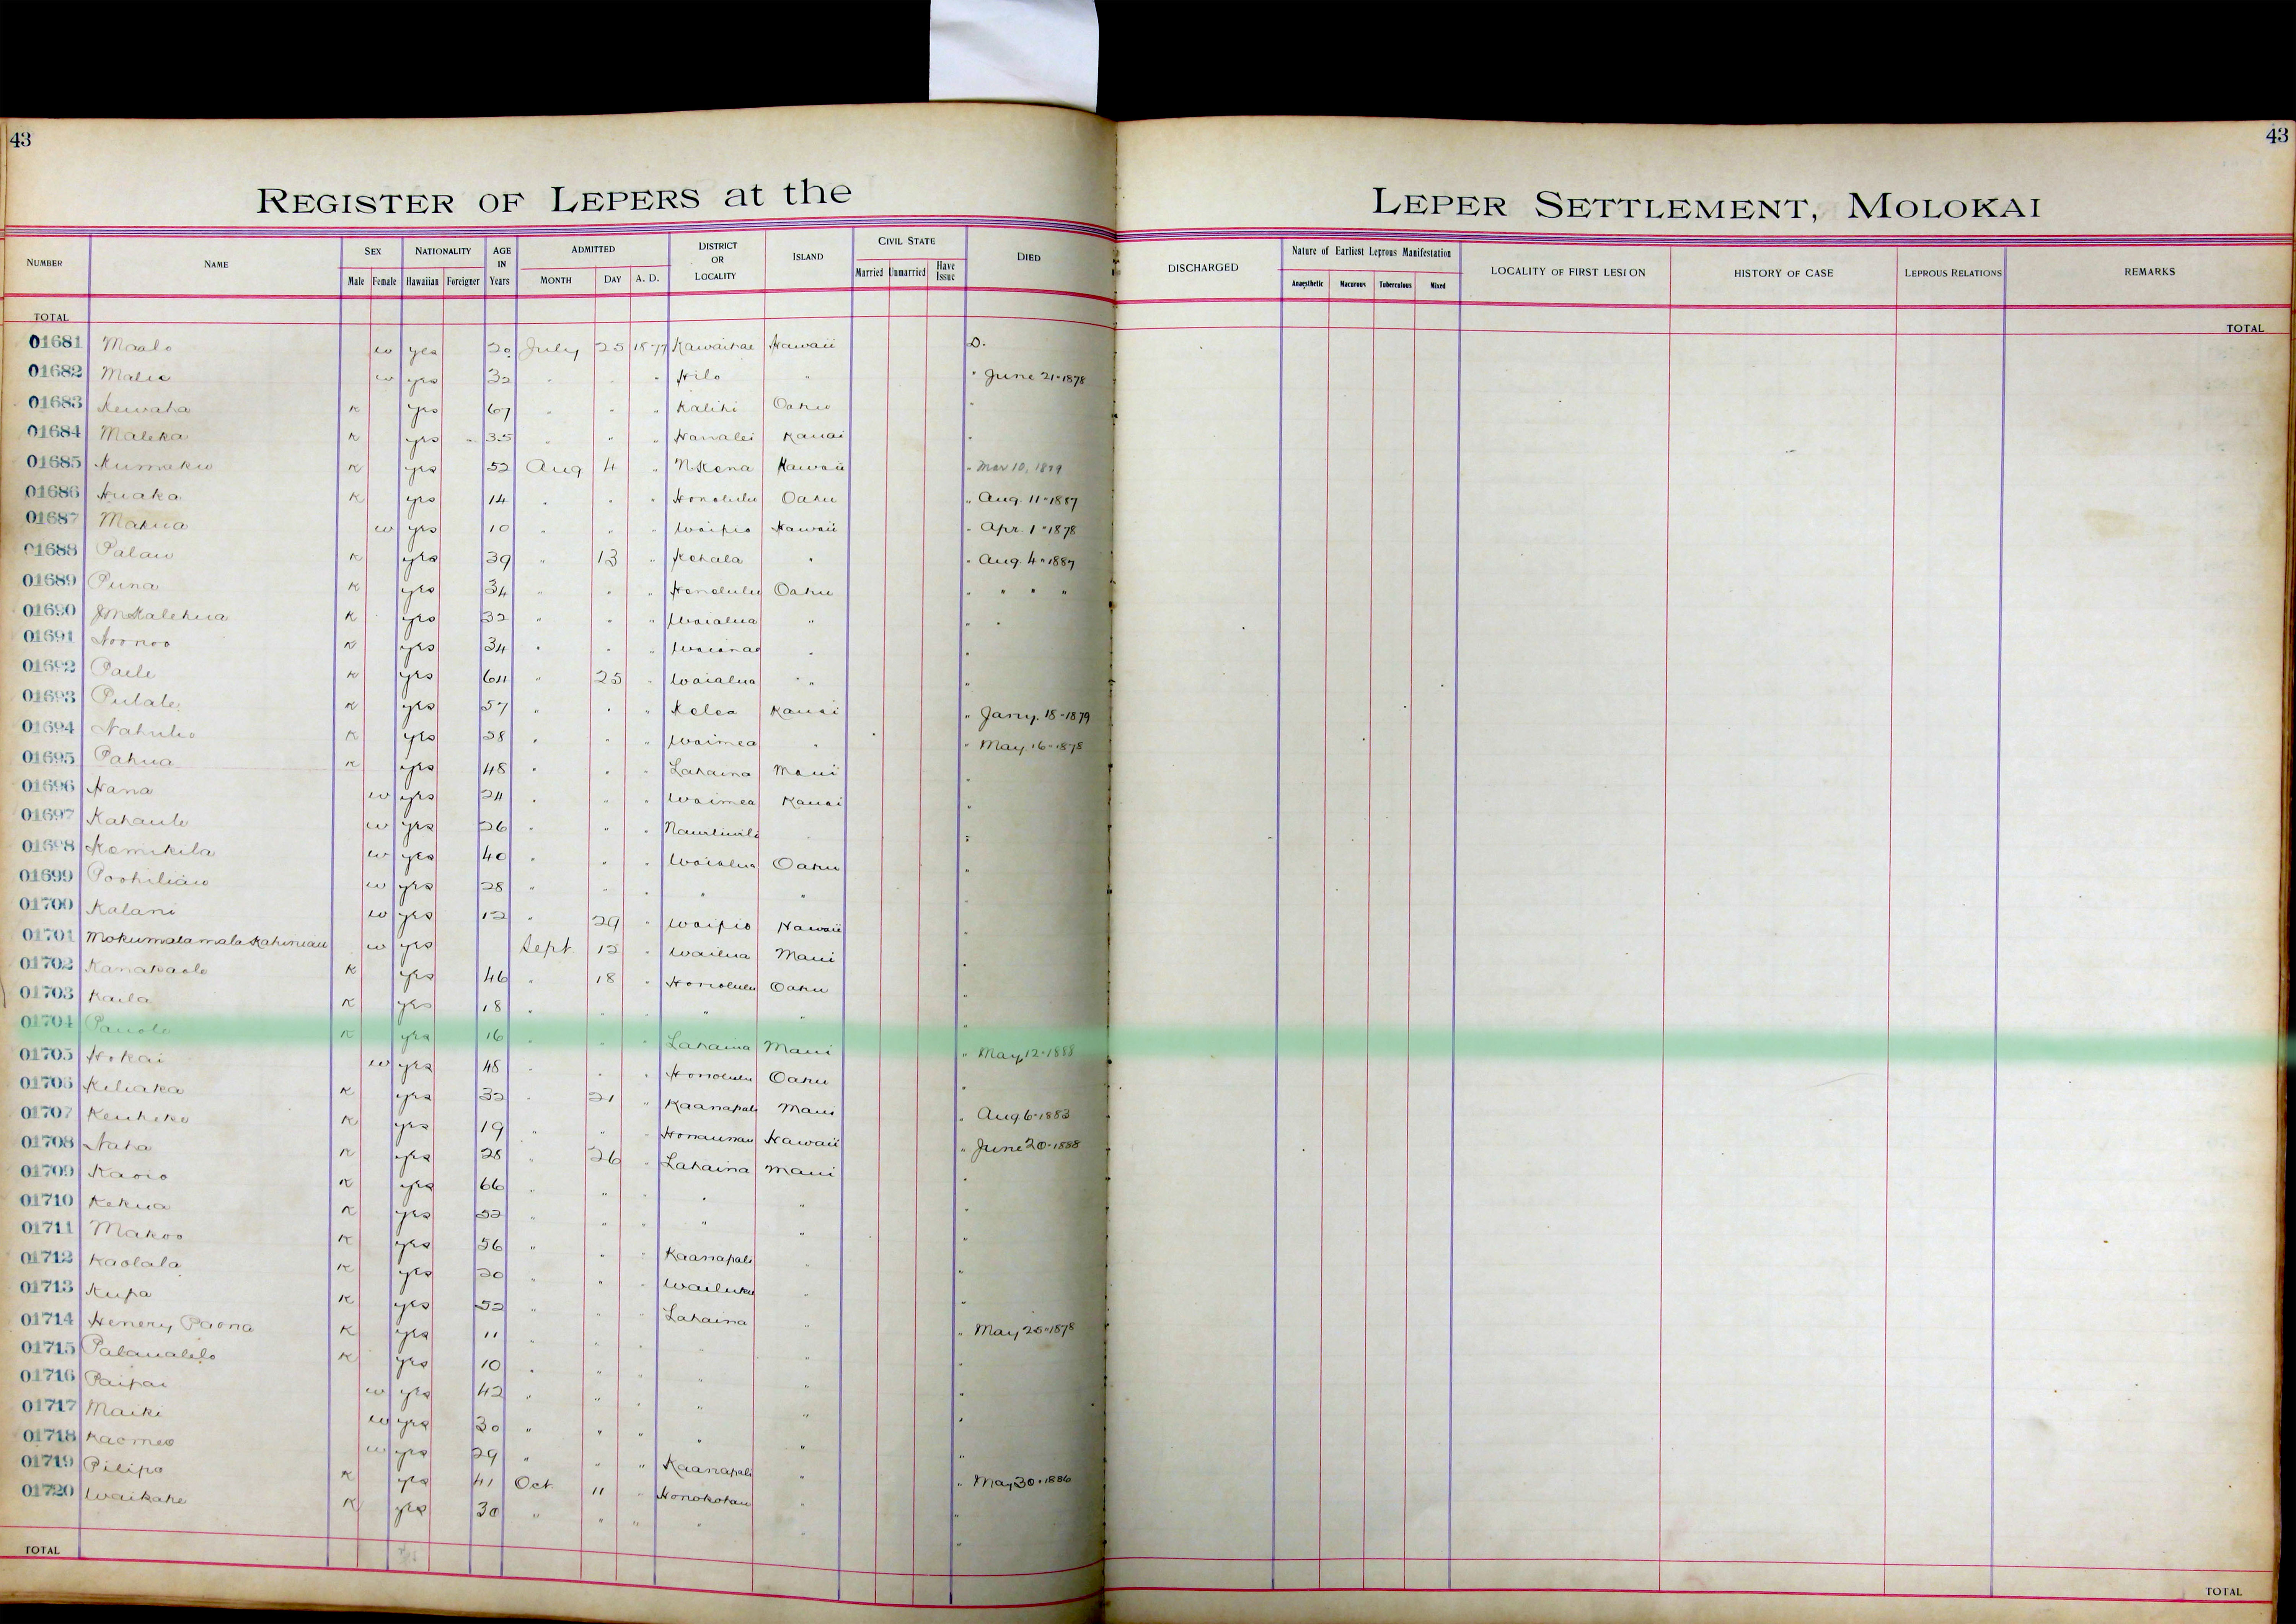 43
43
REGISTER OF LEPERS at the
LEPER SETTLEMENT, MOLOKAI
NUMBER NAME SEX NATIONALITY AGE IN Years ADMITTED DISTRICT OR LOCALITY ISLAND CIVIL STATE DIED
Male Female Hawaiian Foreigner MONTH DAY A. D. Married Unmarried Have Issue
DISCHARGED Nature of Earliest Leprous Manifestation LOCALITY OF FIRST LESION HISTORY OF CASE LEPROUS RELATIONS REMARKS
Anaesthetic Macurous Tuberculous Mixed
TOTAL
TOTAL
01681 Maalo w yes 20 July 25 1877 Kawaihae Hawaii D.
01682 w yes 32 " " " Hilo " " June 21-1878
01683 Kewaha K yes 67 " " " Kalihi Oahu "
01684 Maleka K yes 35 " " " Hanalei Kauai "
01685 Kumaku K yes 52 Aug 4 " N Kona Hawaii " Mar 10, 1879
01686 Huaka K yes 14 " " " Honolulu Oahu " Aug. 11-1887
01687 Makua w yes 10 " " " Waipio Hawaii " Apr. 1-1878
01688 Palau K yes 39 " 13 " Kohala " " Aug. 4-1887
01689 Puna K yes 34 " " " Honolulu Oahu " " " "
01690 J M Kalehua K yes 32 " " " Waialua " " "
01691 Hoonoo K yes 34 " " " Waianae " "
01692 Paele K yes 64 " 25 " Waialua " "
01693 Pulale K yes 57 " " " Kolea Kauai " Jany. 18-1879
01694 K yes 28 " " " Waimea " " May 16-1878
01695 Pahua K yes 48 " " " Lahaina Maui "
01696 Hana w yes 24 " " " Waimea Kauai "
01697 Kahaule w yes 26 " " " "
01698 Kamikila w yes 40 " " " Waialua Oahu "
01699 Poohiliau w yes 28 " " " " " "
01700 Kalani w yes 12 " 29 " Waipio Hawaii "
01701 Mokumalamala Kahiniau w yes Sept 12 " Wailua Maui "
01702 Kanakaole K yes 46 " 18 " Honolulu Oahu "
01703 Kaila K yes 18 " " " " " "
01704 Pauole K yes 16 " " " Lahaina Maui " May 12-1888
01705 Hokai w yes 48 " " " Honolulu Oahu "
01706 Keliaka K yes 32 " 21 " Kaanapali Maui " Aug 6-1883
01707 K yes 19 " " " Honaunau Hawaii " June 20-1888
01708 Naha K yes 28 " 26 " Lahaina Maui "
01709 Kaoio K yes 66 " " " " " "
01710 Kekua K yes 52 " " " " " "
01711 Makoo K yes 56 " " " Kaanapali " "
01712 Kaolala K yes 20 " " " Wailuku " "
01713 Kupa K yes 52 " " " Lahaina " " May 25-1878
01714 Henery Paona K yes 11 " " " " " "
01715 Palaualelo K yes 10 " " " " " "
01716 Paipai w yes 42 " " " " " "
01717 Maiki w yes 30 " " " " " "
01718 Kaomea w yes 29 " " " Kaanapali " " May 30-1886
01719 Pilipo K yes 41 Oct 11 " Honokohau " "
01720 Waikahe K yes 30 " " " " " "
TOTAL
TOTAL